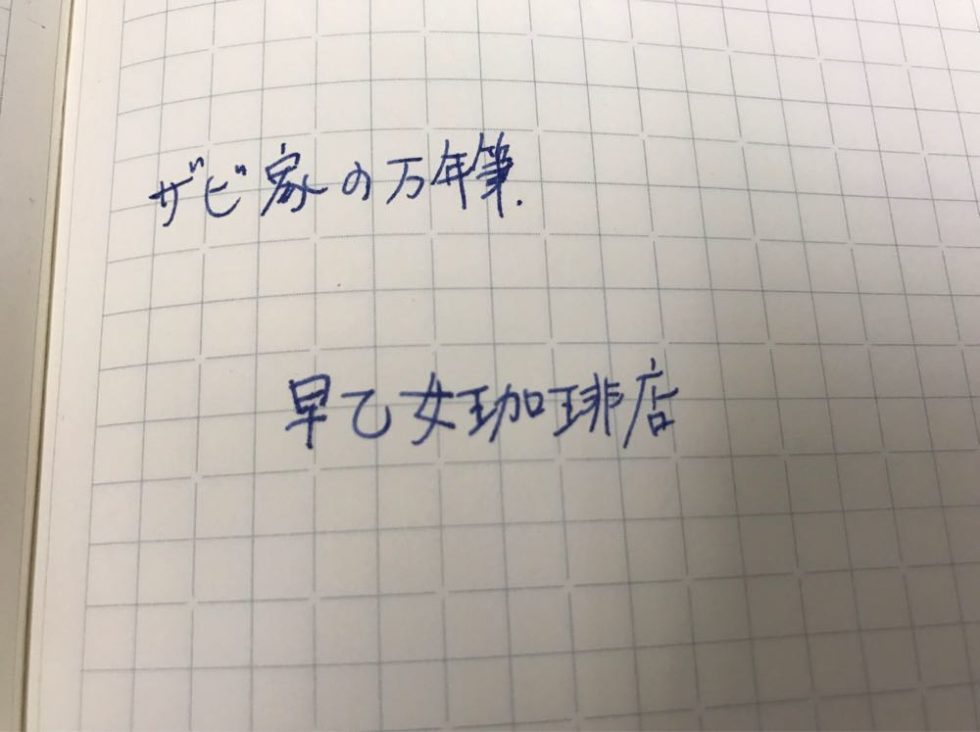 ザビ家の万年筆.
早乙女珈琲店